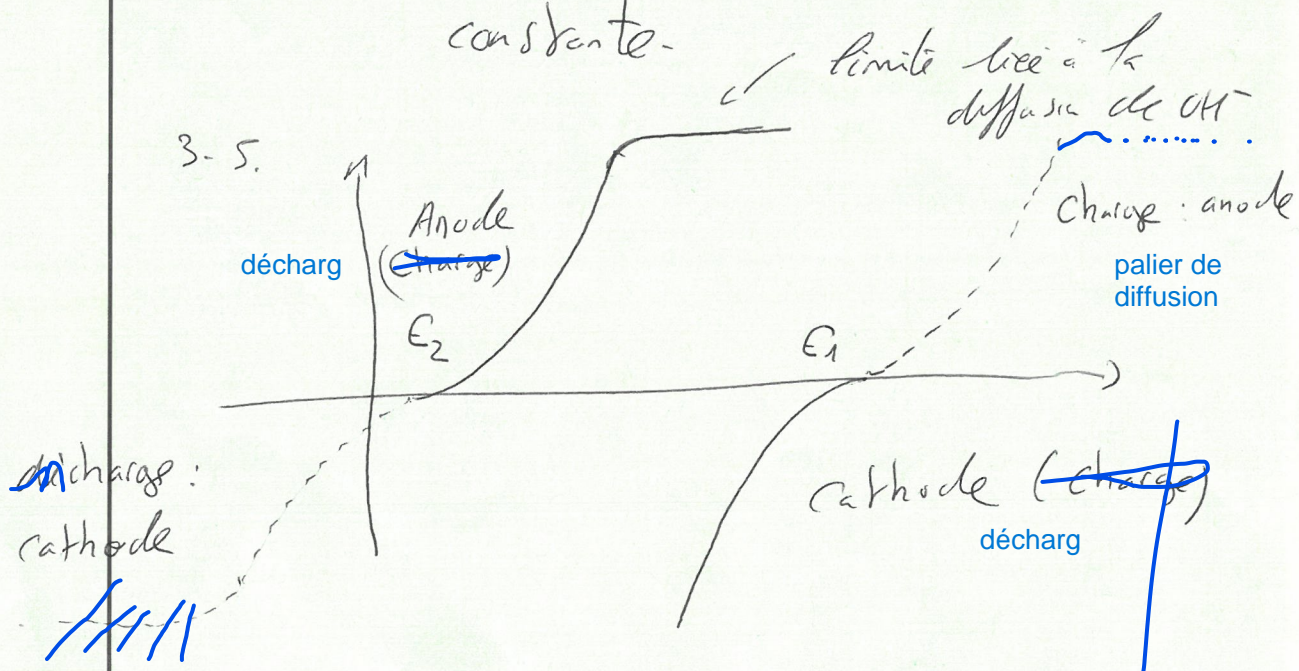 constante.
limite liée à la
diffusion de OH⁻
3-5.
Anode
décharg
(Charge)
Charge : anode
palier de
diffusion
E2
E1
charge :
cathode
Cathode (Charge)
décharg